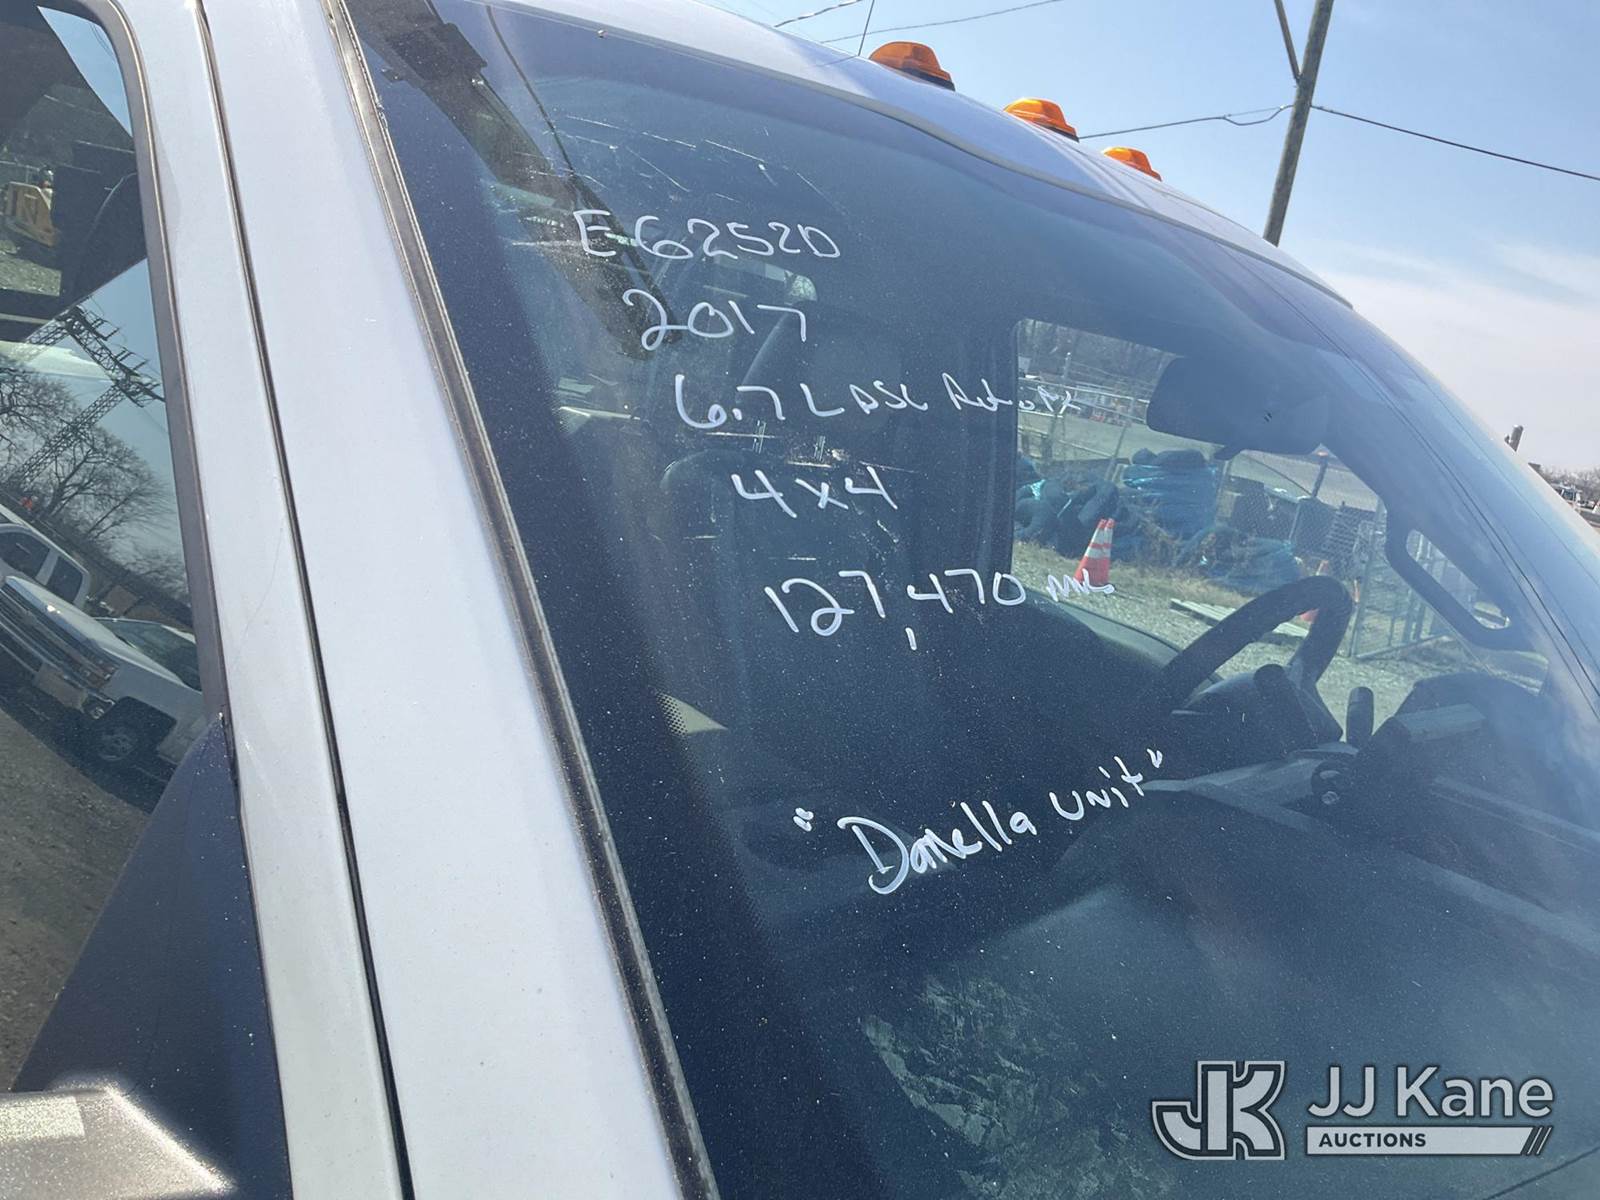 E-6252D
2017
6.7L DSL
4x4
127,470
"Danella Unit"
JK JJ Kane
AUCTIONS